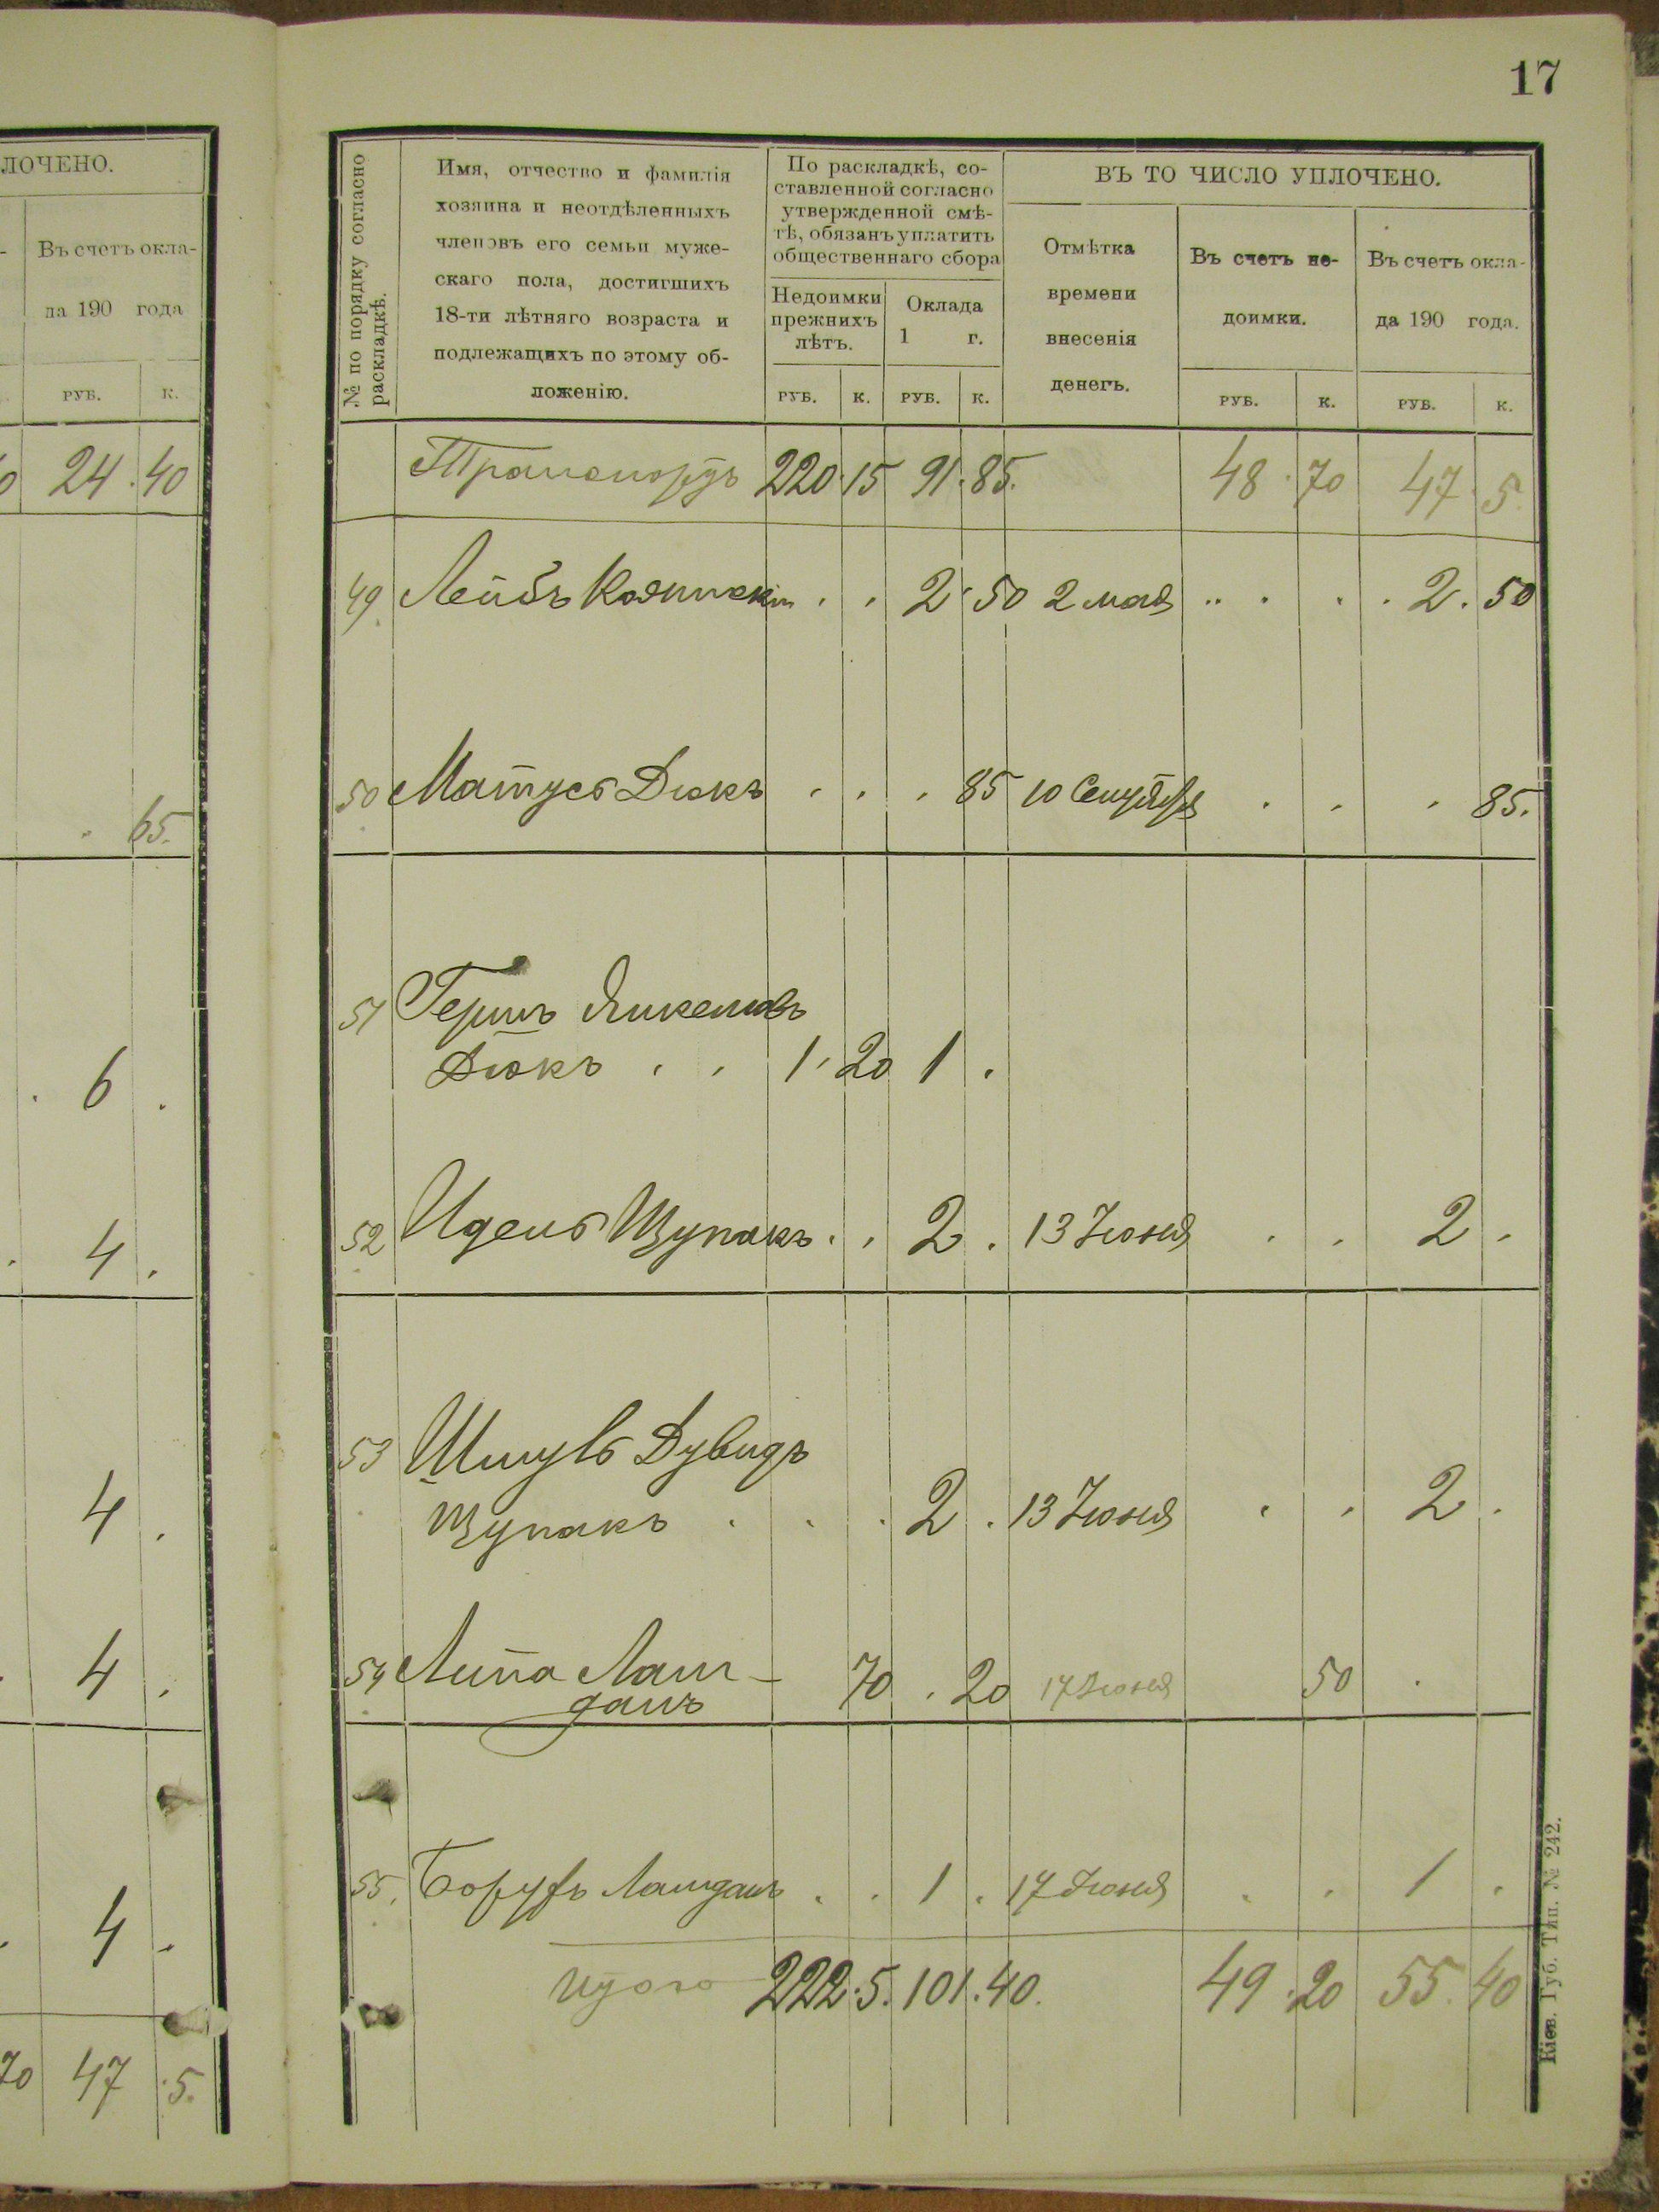 ЛОЧЕНО.
Въ счетъ окла-
да 190 года
РУБ. К.
0 24 . 40
. 65.
. 6 .
. 4 .
4 .
. 4 .
. 4 .
70 47 . 5.
17
№ по порядку согласно
раскладкѣ.
Имя, отчество и фамилія
хозяина и неотдѣленныхъ
членовъ его семьи муже-
скаго пола, достигшихъ
18-ти лѣтняго возраста и
подлежащихъ по этому об-
ложенію.
По раскладкѣ, со-
ставленной согласно
утвержденной смѣ-
тѣ, обязанъ уплатить
общественнаго сбора
Недоимки
прежнихъ
лѣтъ.
РУБ. К.
Оклада
1 г.
РУБ. К.
ВЪ ТО ЧИСЛО УПЛОЧЕНО.
Отмѣтка
времени
внесенія
денегъ.
Въ счетъ не-
доимки.
РУБ. К.
Въ счетъ окла-
да 190 года.
РУБ. К.
Транспортъ 220 . 15 91 . 85. 48 . 70 47 . 5.
49 Лейбъ . . 2 . 50 2 мая .. . . . 2 . 50
50 Матусь Дюкъ . . . 85 10 Сентября . . . 85.
51 Гершъ Янкелевъ
Дюкъ . . 1 . 20 1 .
52 Идель Щупакъ . . 2 . 13 Іюня . . 2 .
53 Шмуль Дувидъ
Щупакъ . . . 2 . 13 Іюня . . 2 .
54 Липа Лан-
данъ 70 . 20 17 Іюня 50 .
55. Борухъ Ланданъ . . 1 . 17 Іюня . . 1 .
Итого 222 . 5. 101 . 40. 49 . 20 55 . 40
Кіев. Губ. Тип. № 242.